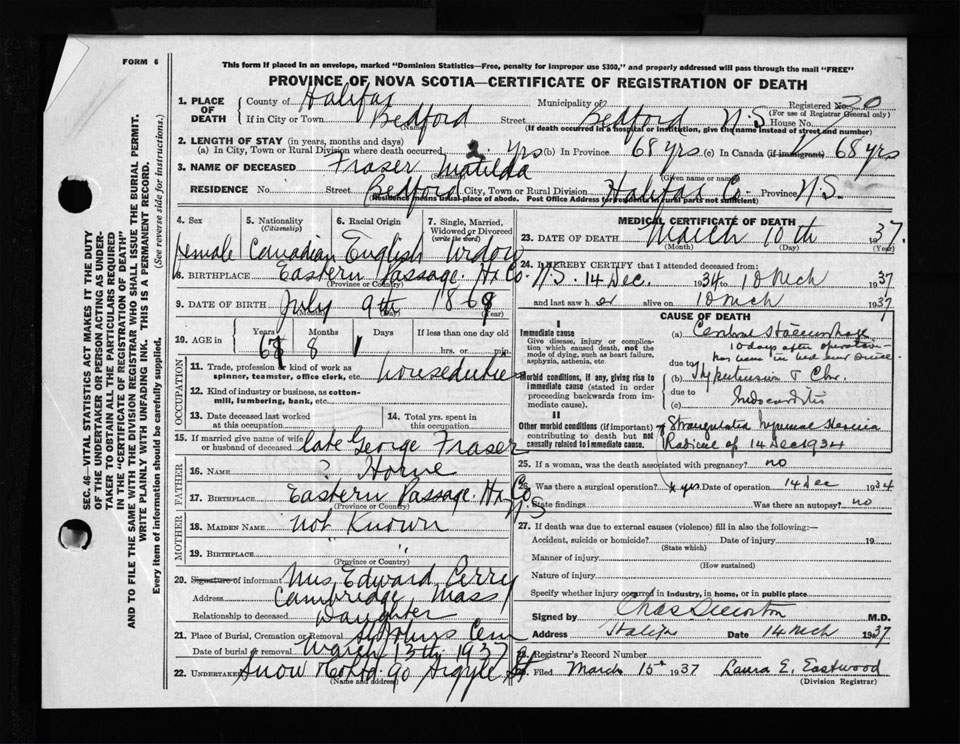 FORM 6
This form if placed in an envelope, marked "Dominion Statistics—Free, penalty for improper use $300," and properly addressed will pass through the mail "FREE"
PROVINCE OF NOVA SCOTIA—CERTIFICATE OF REGISTRATION OF DEATH
1. PLACE OF DEATH County of Halifax Municipality of Registered No. 20
(For use of Registrar General only)
If in City or Town Bedford Street Bedford N.S House No.
(Name) (If death occurred in a hospital or institution, give the name instead of street and number)
2. LENGTH OF STAY (in years, months and days)
(a) In City, Town or Rural Division where death occurred 2 yrs (b) In Province 68 yrs (c) In Canada (if immigrant) 68 yrs
3. NAME OF DECEASED Fraser Matilda
(Surname) (Given name or names)
RESIDENCE No. Street Bedford City, Town or Rural Division Halifax Co. Province N.S.
(Residence means usual place of abode. Post Office Address for residents in rural parts not sufficient)
4. Sex 5. Nationality (Citizenship) 6. Racial Origin 7. Single, Married, Widowed or Divorced (write the word)
Female Canadian English Widow
8. BIRTHPLACE Eastern Passage. Hx Co. N.S.
(Province or Country)
9. DATE OF BIRTH July 9th 1868
(Month) (Day) (Year)
10. AGE in Years Months Days If less than one day old
68 8 1 hrs. or min.
OCCUPATION
11. Trade, profession or kind of work as spinner, teamster, office clerk, etc. houseduties
12. Kind of industry or business, as cotton-mill, lumbering, bank, etc.
13. Date deceased last worked at this occupation
14. Total yrs. spent in this occupation
15. If married give name of wife or husband of deceased late George Fraser
FATHER
16. NAME ? Horne
17. BIRTHPLACE Eastern Passage. Hx Co N S
(Province or Country)
MOTHER
18. MAIDEN NAME not Known
19. BIRTHPLACE " "
(Province or Country)
20. Signature of informant Mrs Edward Perry
Address Cambridge, Mass
Relationship to deceased Daughter
21. Place of Burial, Cremation or Removal St Johns Cem
Date of burial or removal March 13th 1937
22. UNDERTAKER Snow & Co Ltd 90 Argyle St
(Name and address)
MEDICAL CERTIFICATE OF DEATH
23. DATE OF DEATH March 10th 1937.
(Month) (Day) (Year)
24. I HEREBY CERTIFY that I attended deceased from
14 Dec. 1934 to 10 Mch 1937
and last saw her alive on 10 Mch 1937
CAUSE OF DEATH
I
Immediate cause
Give disease, injury or complication which caused death, not the mode of dying, such as heart failure, asphyxia, asthenia, etc.
(a) Cerebral Haemorrhage
10 days after operation
due to
Morbid conditions, if any, giving rise to immediate cause (stated in order proceeding backwards from immediate cause).
(b) Hypertension & Chr.
due to
(c) Endocarditis
II
Other morbid conditions (if important) contributing to death but not causally related to immediate cause.
Strangulated Inguinal Hernia
Radical of 14 Dec 1934
25. If a woman, was the death associated with pregnancy? no
26. Was there a surgical operation? yes Date of operation 14 Dec 1934
State findings Was there an autopsy? no
27. If death was due to external causes (violence) fill in also the following:—
Accident, suicide or homicide? Date of injury 19
(State which)
Manner of injury
(How sustained)
Nature of injury
Specify whether injury occurred in Industry, in home, or in public place
Signed by M.D.
Address Halifax Date 14 Mch 1937
28. Registrar's Record Number
29. Filed March 15th 1937 Laura E. Eastwood
(Division Registrar)
SEC. 46—VITAL STATISTICS ACT MAKES IT THE DUTY
OF THE UNDERTAKER OR PERSON ACTING AS UNDERTAKER TO OBTAIN ALL THE PARTICULARS REQUIRED
IN THE "CERTIFICATE OF REGISTRATION OF DEATH"
AND TO FILE THE SAME WITH THE DIVISION REGISTRAR WHO SHALL ISSUE THE BURIAL PERMIT.
WRITE PLAINLY WITH UNFADING INK. THIS IS A PERMANENT RECORD.
Every item of information should be carefully supplied. (See reverse side for instructions.)